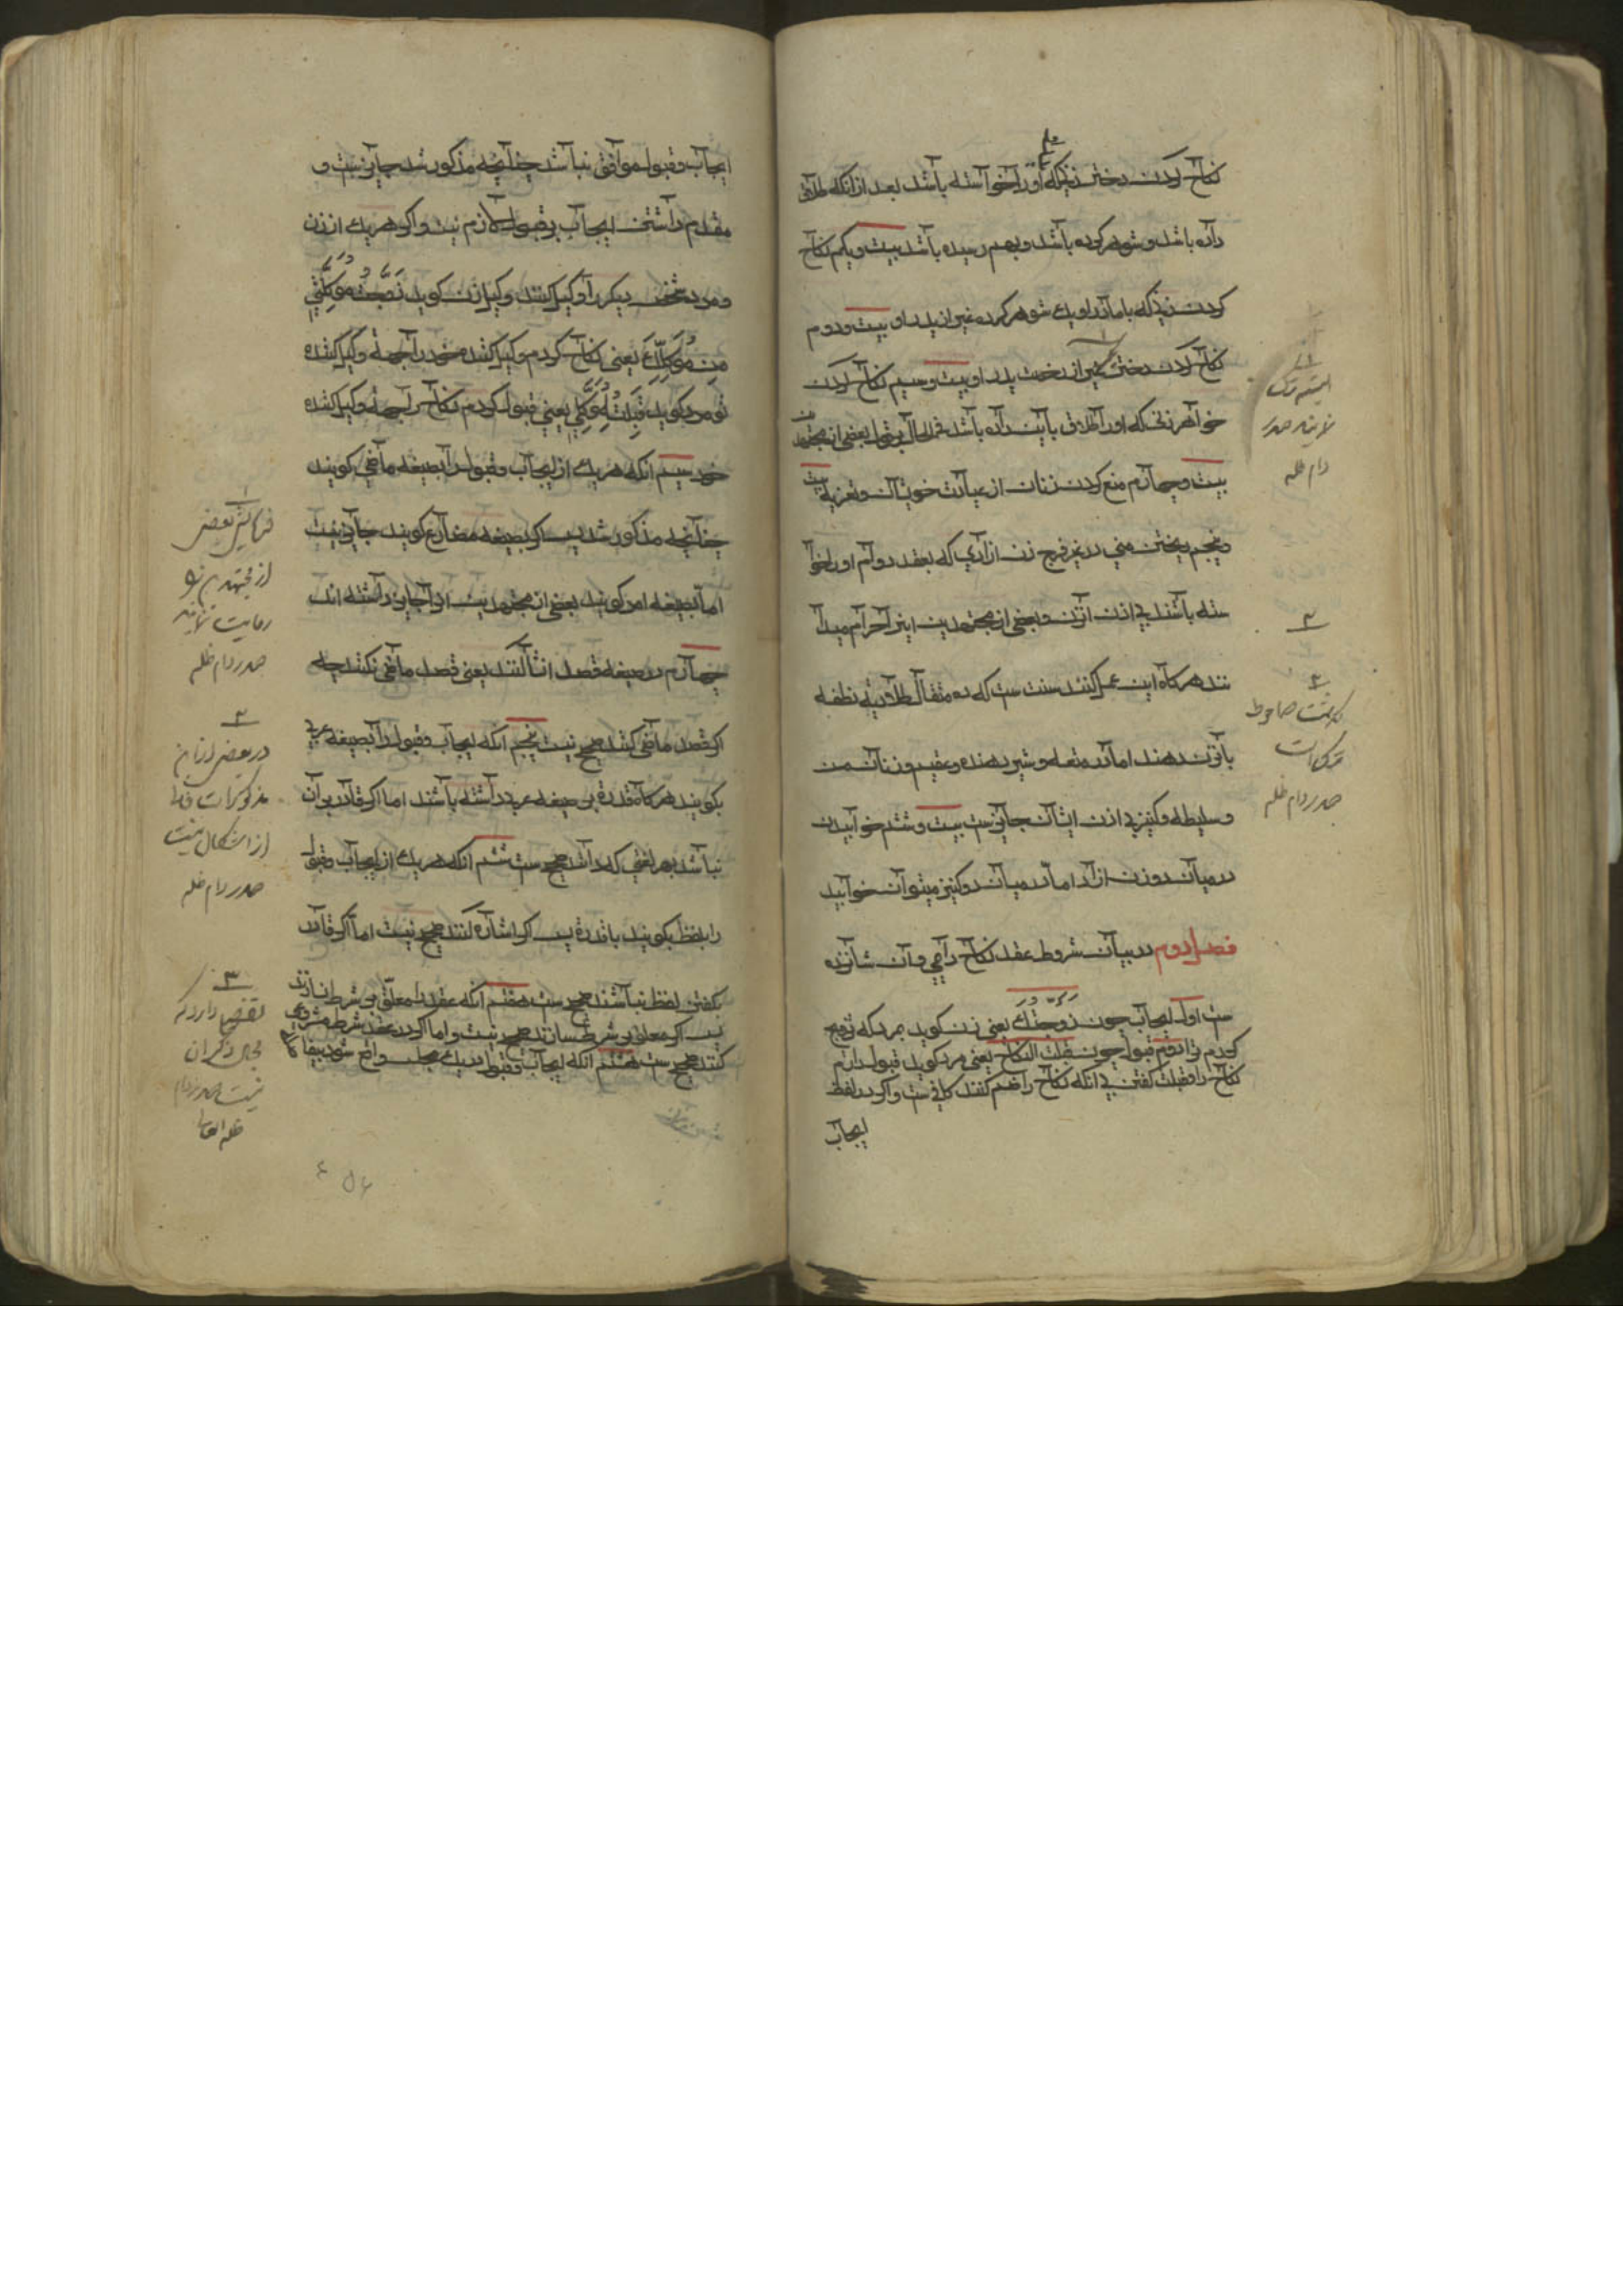 نکاح کردن دختر زنی که او را خواسته باشد بعد از آنکه طلاق
داده باشد و شوهر کرده باشد و بهم رسیده باشد بیست و یکم نکاح
کردن زنی که با مادر او پدر شوهر کرده غیر از پدر او بیست و دوم
نکاح کردن دختر غیر از دخت پدر او بیست و سیم نکاح کردن
خواهر زنی که او را طلاق باین داده باشد فی الحال بر قول بعضی از مجتهدین
بیست و چهارم منع کردن زنان از عیادت خویشان و تعزیه بیست
و پنجم ریختن منی در غیر فرج زن ازاد که بعقد دوام او را خوا
سته باشند بی اذن او و بعضی از مجتهدین اینرا حرام میدا
نند هرگاه این عمل کنند سنت ست که ده مثقال طلا دیه نطفه
باو دهند اما در متعه و شیر دهنده و عقیم و زنان مسن
و سلیطه و کنیز بی اذن ایشان جایزست بیست و ششم خوابیدن
در میان دو زن ازاد اما در میان دو کنیز میتوان خوابید
فصل دوم در بیان شروط عقد نکاح دایمی و آن شانزده
ست اول ایجاب چون زوجتك یعنی زن گوید بمرد که تزویج
کردم ترا دوم قبول چون قبلت النکاح یعنی مرد گوید قبول دارم
نکاح را و قبلت گفتن بی انکه نکاح را ضم کنند کافیست و اگر در لفظ
ایجاب
البته ترک
نمایند صدر
دام ظله
۲
صدر دام ظله
ایجاب و قبول موافق نباشد چنانچه مذکور شد جایزست و
مقدم داشتن ایجاب بر قبول لازم نیست و اگر هر یك از زن
و مرد شخص دیگر را وکیل کنند وکیل زن گوید زوجت موکلتی
من موکلك یعنی نکاح کردم وکیل کننده خود را بجهة وکیل کننده
تو مرد گوید قبلت لموکلی یعنی قبول کردم نکاح را بجهة وکیل کننده
خود سیم انکه هر یك از ایجاب و قبول را بصیغه ماضی گویند
چنانچه مذکور شد پس اگر بصیغه مضارع گویند جایز نیست
اما بصیغه امر گویند بعضی از مجتهدین انرا جایز داشته اند
چهارم در صیغه قصد انشا کنند یعنی قصد ماضی نکنند چه
اگر قصد ماضی کنند صحیح نیست پنجم انکه ایجاب و قبول را بصیغه عربی
بگویند هرگاه قدرة بر صیغه عربی داشته باشند اما اگر قادر بر آن
نباشد بهر لغتی که داند صحیح ست ششم انکه هر یك از ایجاب و قبول
را بلفظ بگویند با قدرة پس اگر اشاره کنند صحیح نیست اما اگر قادر
بگفتن لفظ نباشند صحیح ست هفتم انکه عقد را معلق بر شرط نسازند
پس اگر معلق بر شرط سازند صحیح نیست و اما اگر در عقد شرط مشروعی
کنند صحیح ست هشتم انکه ایجاب و قبول در یك مجلس واقع شود پس اگر
۱
بعضی
از مجتهدین
رعایت نمایند
صدر دام ظله
۲
در بعضی از این
مذکورات
از اشکال نیست
صدر دام ظله
۳
تفصیلی دارد که
مجال ذکر ان
نیست صدر دام
ظله العالی